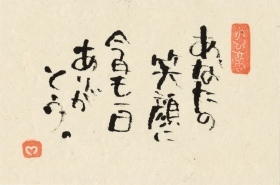 あなたの
笑顔に
今日も一日
ありが
とう。